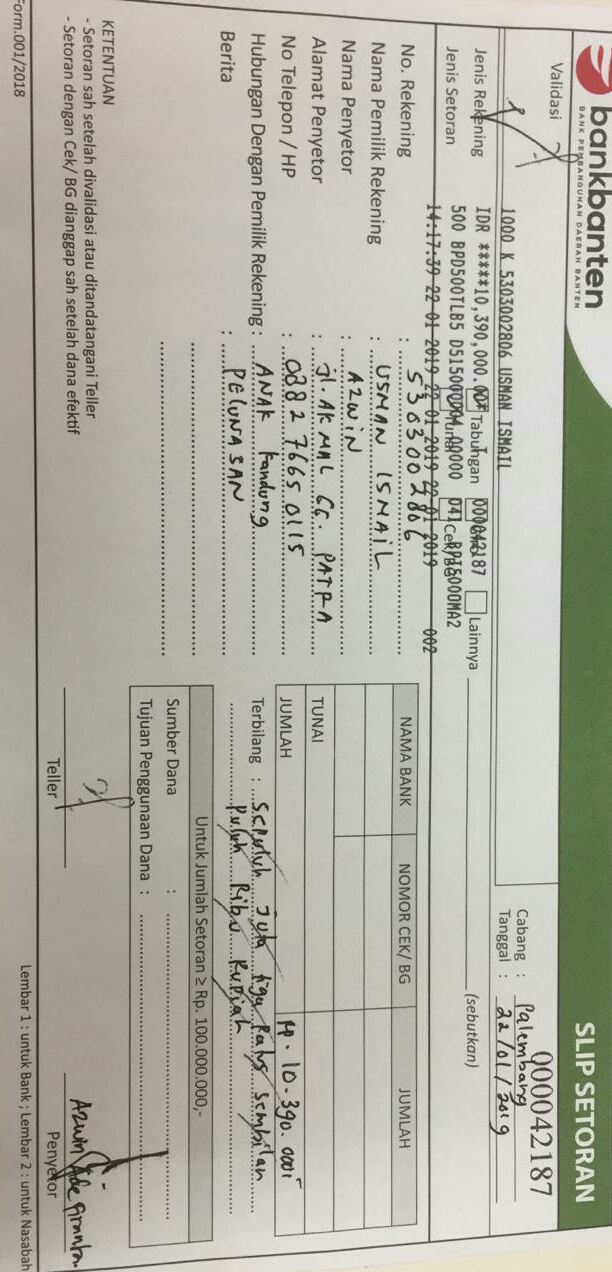 bankbanten
BANK PEMBANGUNAN DAERAH BANTEN
SLIP SETORAN
000042187
Validasi
Cabang : Palembang
Tanggal : 22/01/2019
1000 K 5303002806 USMAN ISMAIL
IDR *****10,390,000.00
000042187
500 BPD500TLB5 D515000004.00000 041
14:17:39 22 01 2019 22 01 2019 22 01 2019 002
Jenis Rekening Tabungan Lainnya (sebutkan)
Jenis Setoran Cek/BG
No. Rekening : 5303002806
Nama Pemilik Rekening : USMAN ISMAIL
Nama Penyetor : AZWIN
Alamat Penyetor : Jl. AKMAL GG. PATRA
No Telepon / HP : 0882 7665 0115
Hubungan Dengan Pemilik Rekening : ANAK kandung
Berita : PELUNASAN
NAMA BANK NOMOR CEK/ BG JUMLAH
TUNAI
JUMLAH Rp. 10.390.000
Terbilang : Sepuluh Juta tiga Ratus Sembilan
Puluh Ribu Rupiah
Untuk Jumlah Setoran ≥ Rp. 100.000.000,-
Sumber Dana :
Tujuan Penggunaan Dana :
KETENTUAN
- Setoran sah setelah divalidasi atau ditandatangani Teller
- Setoran dengan Cek/ BG dianggap sah setelah dana efektif
Teller
Penyetor
Form.001/2018
Lembar 1 : untuk Bank ; Lembar 2 : untuk Nasabah